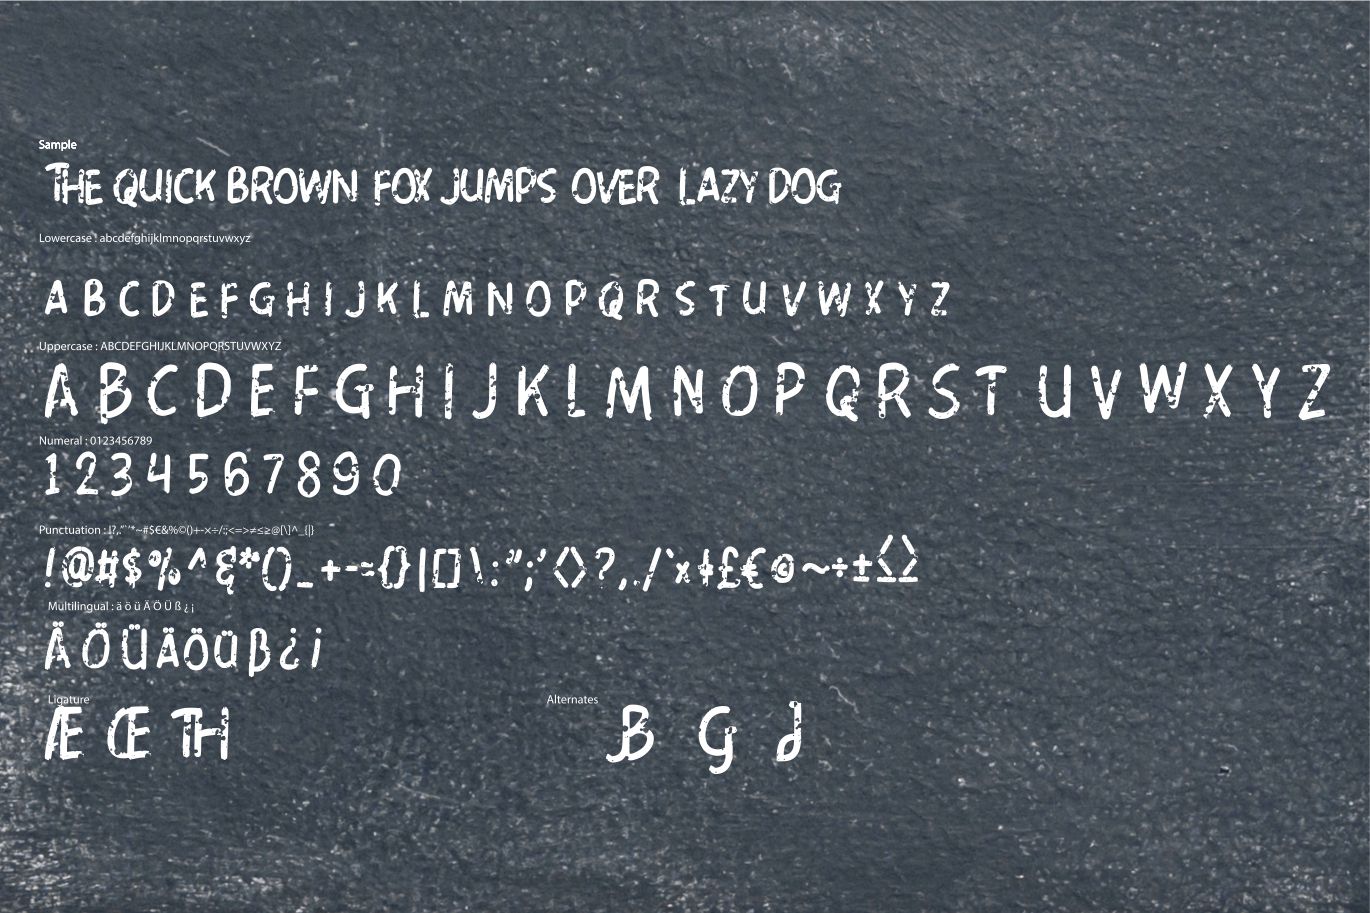 Sample
THE QUICK BROWN FOX JUMPS OVER LAZY DOG
Lowercase : abcdefghijklmnopqrstuvwxyz
A B C D E F G H I J K L M N O P Q R S T U V W X Y Z
Uppercase : ABCDEFGHIJKLMNOPQRSTUVWXYZ
A B C D E F G H I J K L M N O P Q R S T U V W X Y Z
Numeral : 0123456789
1 2 3 4 5 6 7 8 9 0
Punctuation : !?,."`'*~#$€&%©()+-×÷/:;<=>≠≤≥@[\]^_{|}
!@#$%^&*()_+-={}|[]\:";'<>?,./`×ǂ£€©~÷±≤≥
Multilingual : ä ö ü Ä Ö Ü ß ¿ ¡
ÄÖÜÄÖÜß¿¡
Ligature
Æ Œ TH
Alternates
B G d